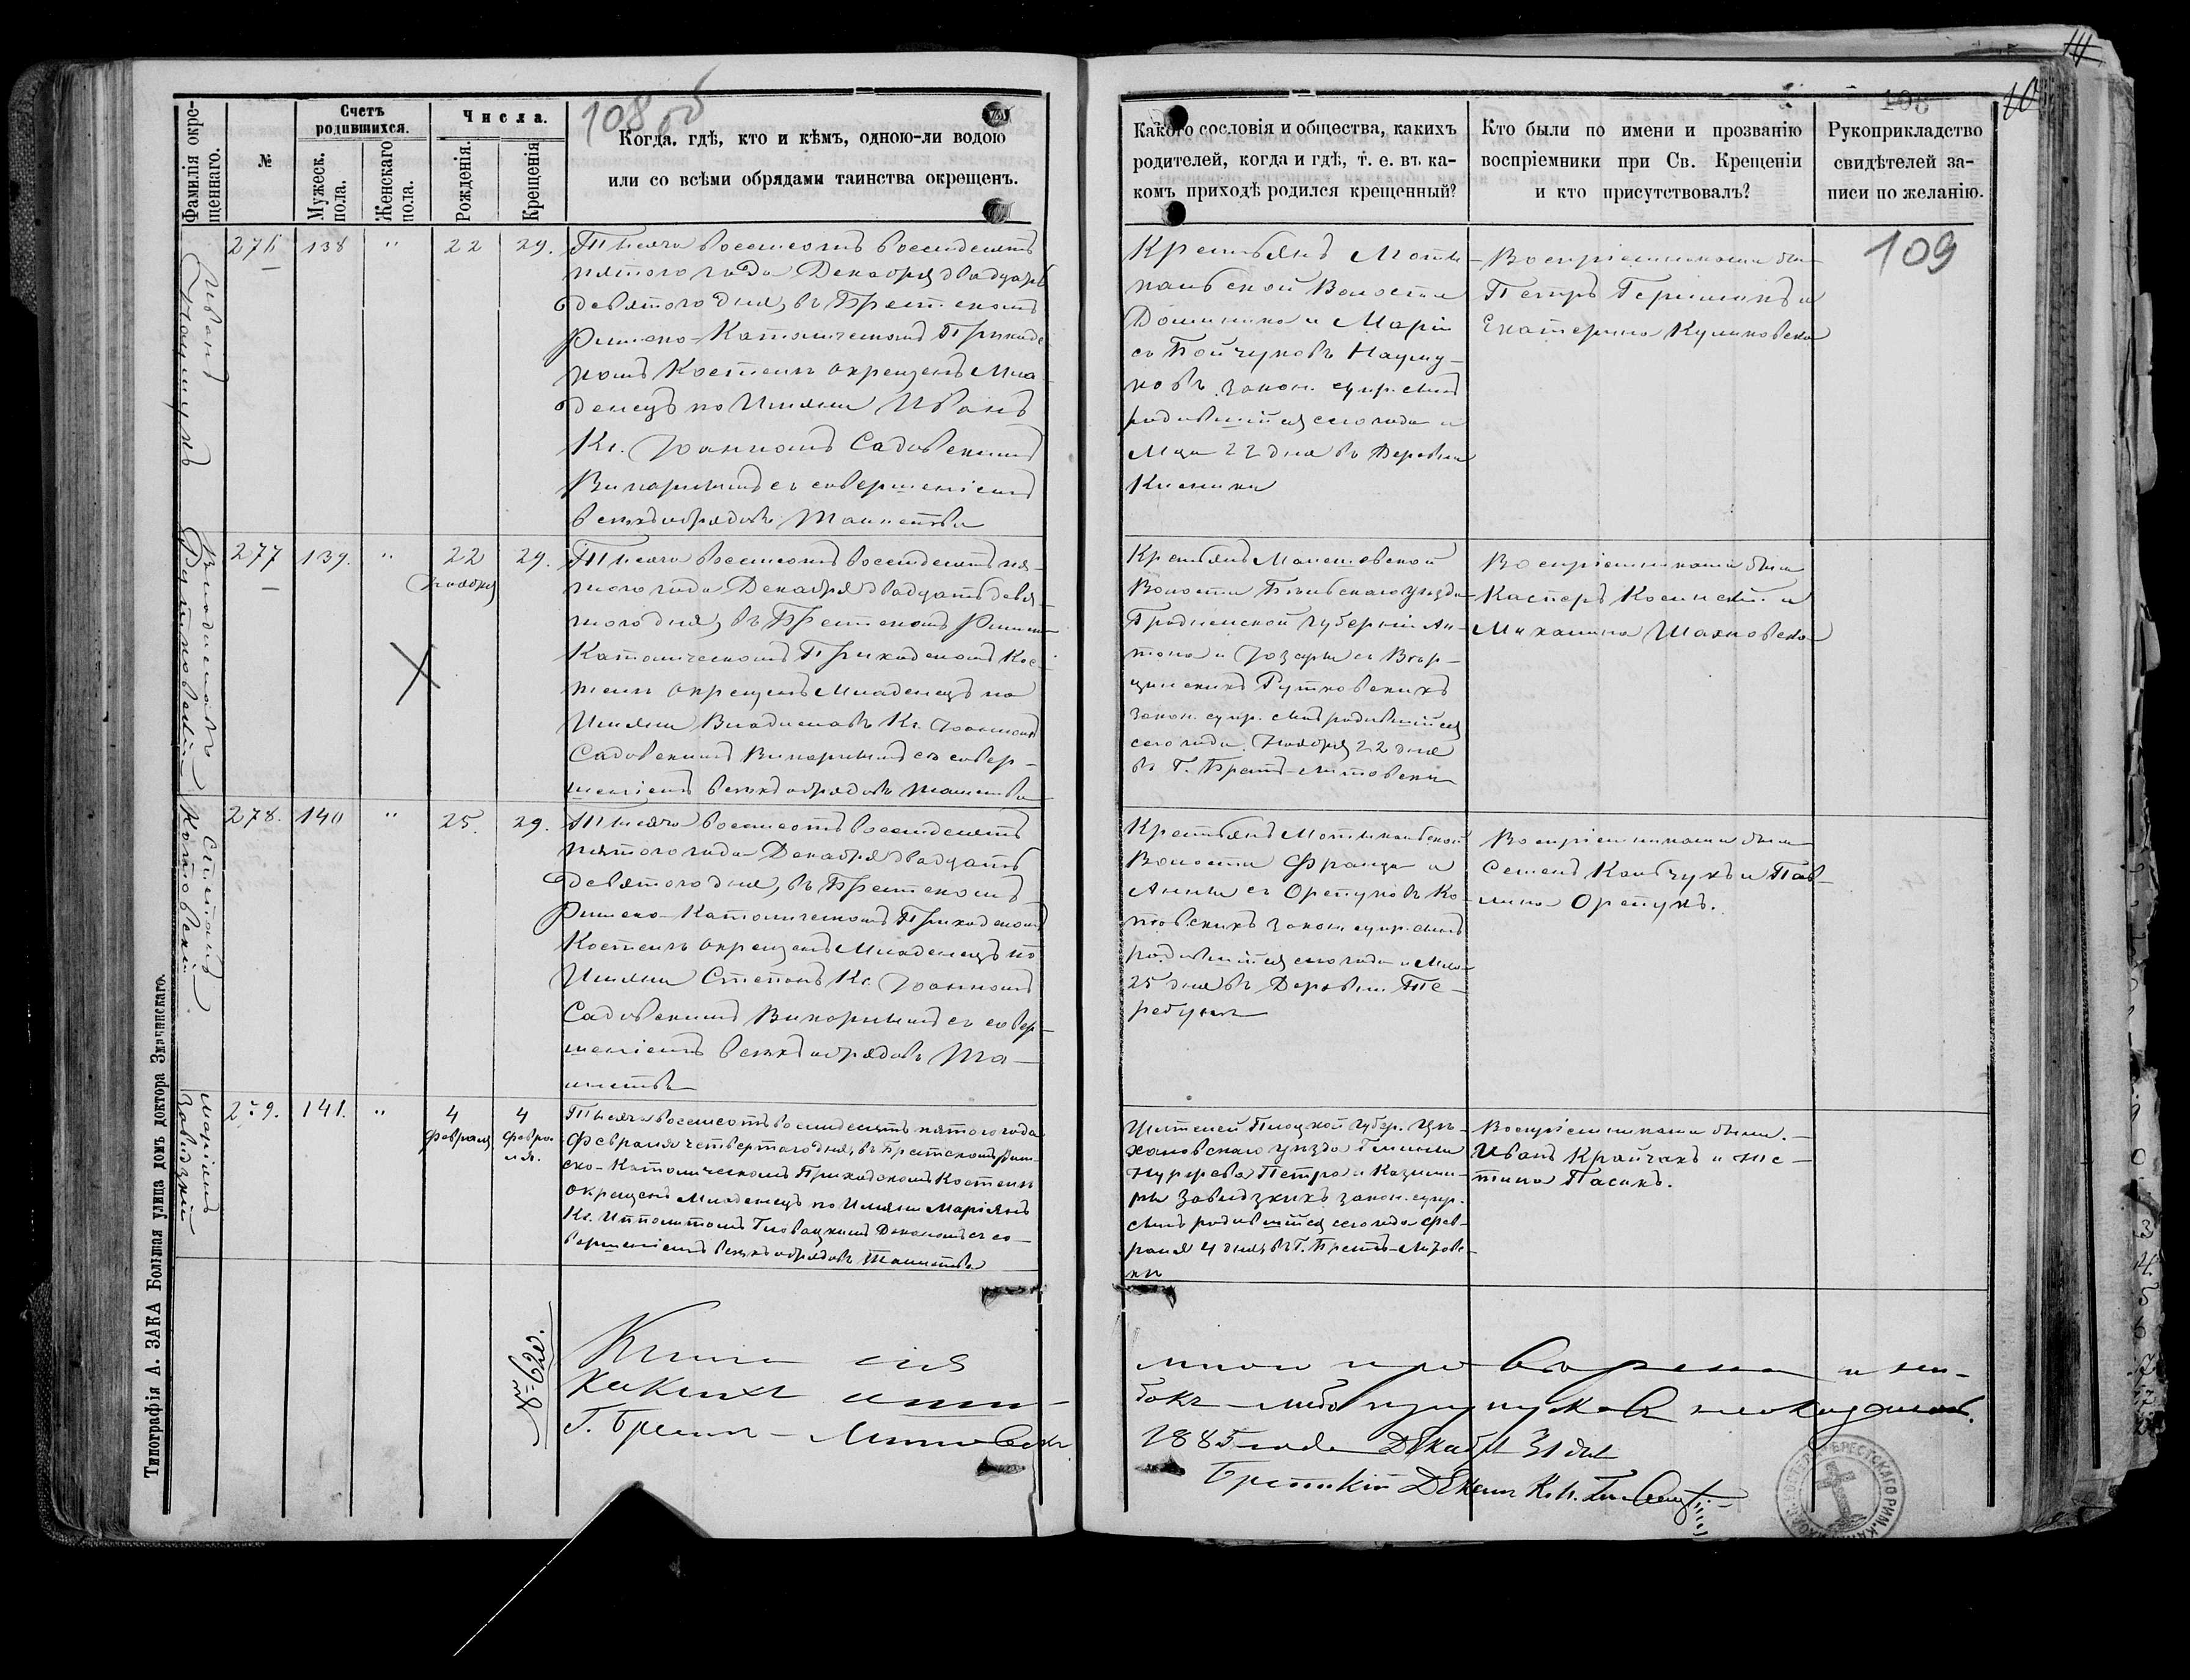 108 об
Фамилія окре-
щеннаго.
№
Счетъ
родившихся.
Мужеск.
пола.
Женскаго
пола.
Числа.
Рожденія.
Крещенія
Когда, гдѣ, кто и кѣмъ, одною-ли водою
или со всѣми обрядами таинства окрещенъ.
Иванъ
Наумукъ
276 138 " 22 29.
Тысяча восемсотъ восемдесятъ
пятого года Декабря двадцать
девятого дня, въ Брестскомъ
Римско-Католическомъ Приход-
скомъ Костелѣ окрещенъ Мла-
денецъ по Имяни Иванъ
Кс. Іоанномъ Садовскимъ
Викарнымъ съ совершеніемъ
всѣхъ обрядовъ Таинства
Владиславъ
Рутковскій
277 139. " 22 29.
Ноября
Тысяча восемсотъ восемдесятъ пя-
того года Декабря двадцать девя-
того дня, въ Брестскомъ Римско
Католическомъ Приходскомъ Кос-
телѣ окрещенъ Младенецъ по
Имяни Владиславъ Кс. Іоанномъ
Садовскимъ Викарнымъ съ совер-
шеніемъ всѣхъ обрядовъ таинства
Степанъ
Котовскій
278. 140 " 25. 29.
Тысяча восемсотъ восемдесятъ
пятого года Декабря двадцать
девятого дня, въ Брестскомъ
Римско-Католическомъ Приходскомъ
Костелѣ окрещенъ Младенецъ по
Имяни Степанъ Кс. Іоанномъ
Садовскимъ Викарнымъ съ совер-
шеніемъ всѣхъ обрядовъ Та-
инства
Маріянъ
Завидзкій
279. 141. " 4 4
Февраля Февра-
ля.
Тысяча восемсотъ восемдесятъ пятого года
Февраля четвертого дня, въ Брестскомъ Рим-
ско-Католическомъ Приходскомъ Костелѣ
окрещенъ Младенецъ по Имяни Маріянъ
Кс. Ипполитомъ Гловацкимъ Деканомъ съ со-
вершеніемъ всѣхъ обрядовъ Таинства
№ 620.
Книга сія
какихъ оши-
Г. Брестъ-Литовскъ
Типографія А. ЗАКА Большая улица домъ доктора Значинскаго.
Какого сословія и общества, какихъ
родителей, когда и гдѣ, т. е. въ ка-
комъ приходѣ родился крещенный?
Кто были по имени и прозванію
воспріемники при Св. Крещеніи
и кто присутствовалъ?
Рукоприкладство
свидѣтелей за-
писи по желанію.
109
Крестьянъ Моты-
кальской Волости
Доминика и Маріи
съ Бойчуковъ Науму-
ковъ закон. супр. сынъ
родившійся сего года и
М-ца 22 дня въ Деревни
Воспріемниками были
Петръ Гершонъ и
Екатерина Куликовска
Крестьянъ Малешевской
Волости Бѣльскаго Уѣзда
Гродненской Губерніи Ан-
тона и Іозефы съ Вер-
цинскихъ Рутковскихъ
закон. супр. сынъ родившійся
сего года Ноября 22 дня
въ Г. Брестъ-Литовски
Воспріемниками были
Касперъ Косинскій и
Михалина Шахновска
Крестьянъ Мотыкальской
Волости Франца и
Анны съ Орепуковъ Ко-
товскихъ закон. супр. сынъ
родившійся сего года и М-ца
25 дня въ Деревни Те-
ребунь
Воспріемниками были
Семенъ Кольчукъ и Пав-
лина Орепукъ.
Жителей Плоцкой Губер. Цѣ-
хановскаго уѣзда Гмины
Нуререва Петра и Казими-
ры Завидзкихъ закон. супр.
сынъ родившійся сего года Фев-
раля 4 дня, въ Г. Брестъ-Литовс-
кѣ
Воспріемниками были.
Иванъ Крайчакъ и Юс-
тина Пасикъ.
мною провѣрена и оши-
бокъ-либо пропусковъ не оказалось.
1885 года Декабря 31 дня
Брестскій Деканъ Кс. И. Гловацкій
БРЕСТСКАГО РИМ. КАТ.